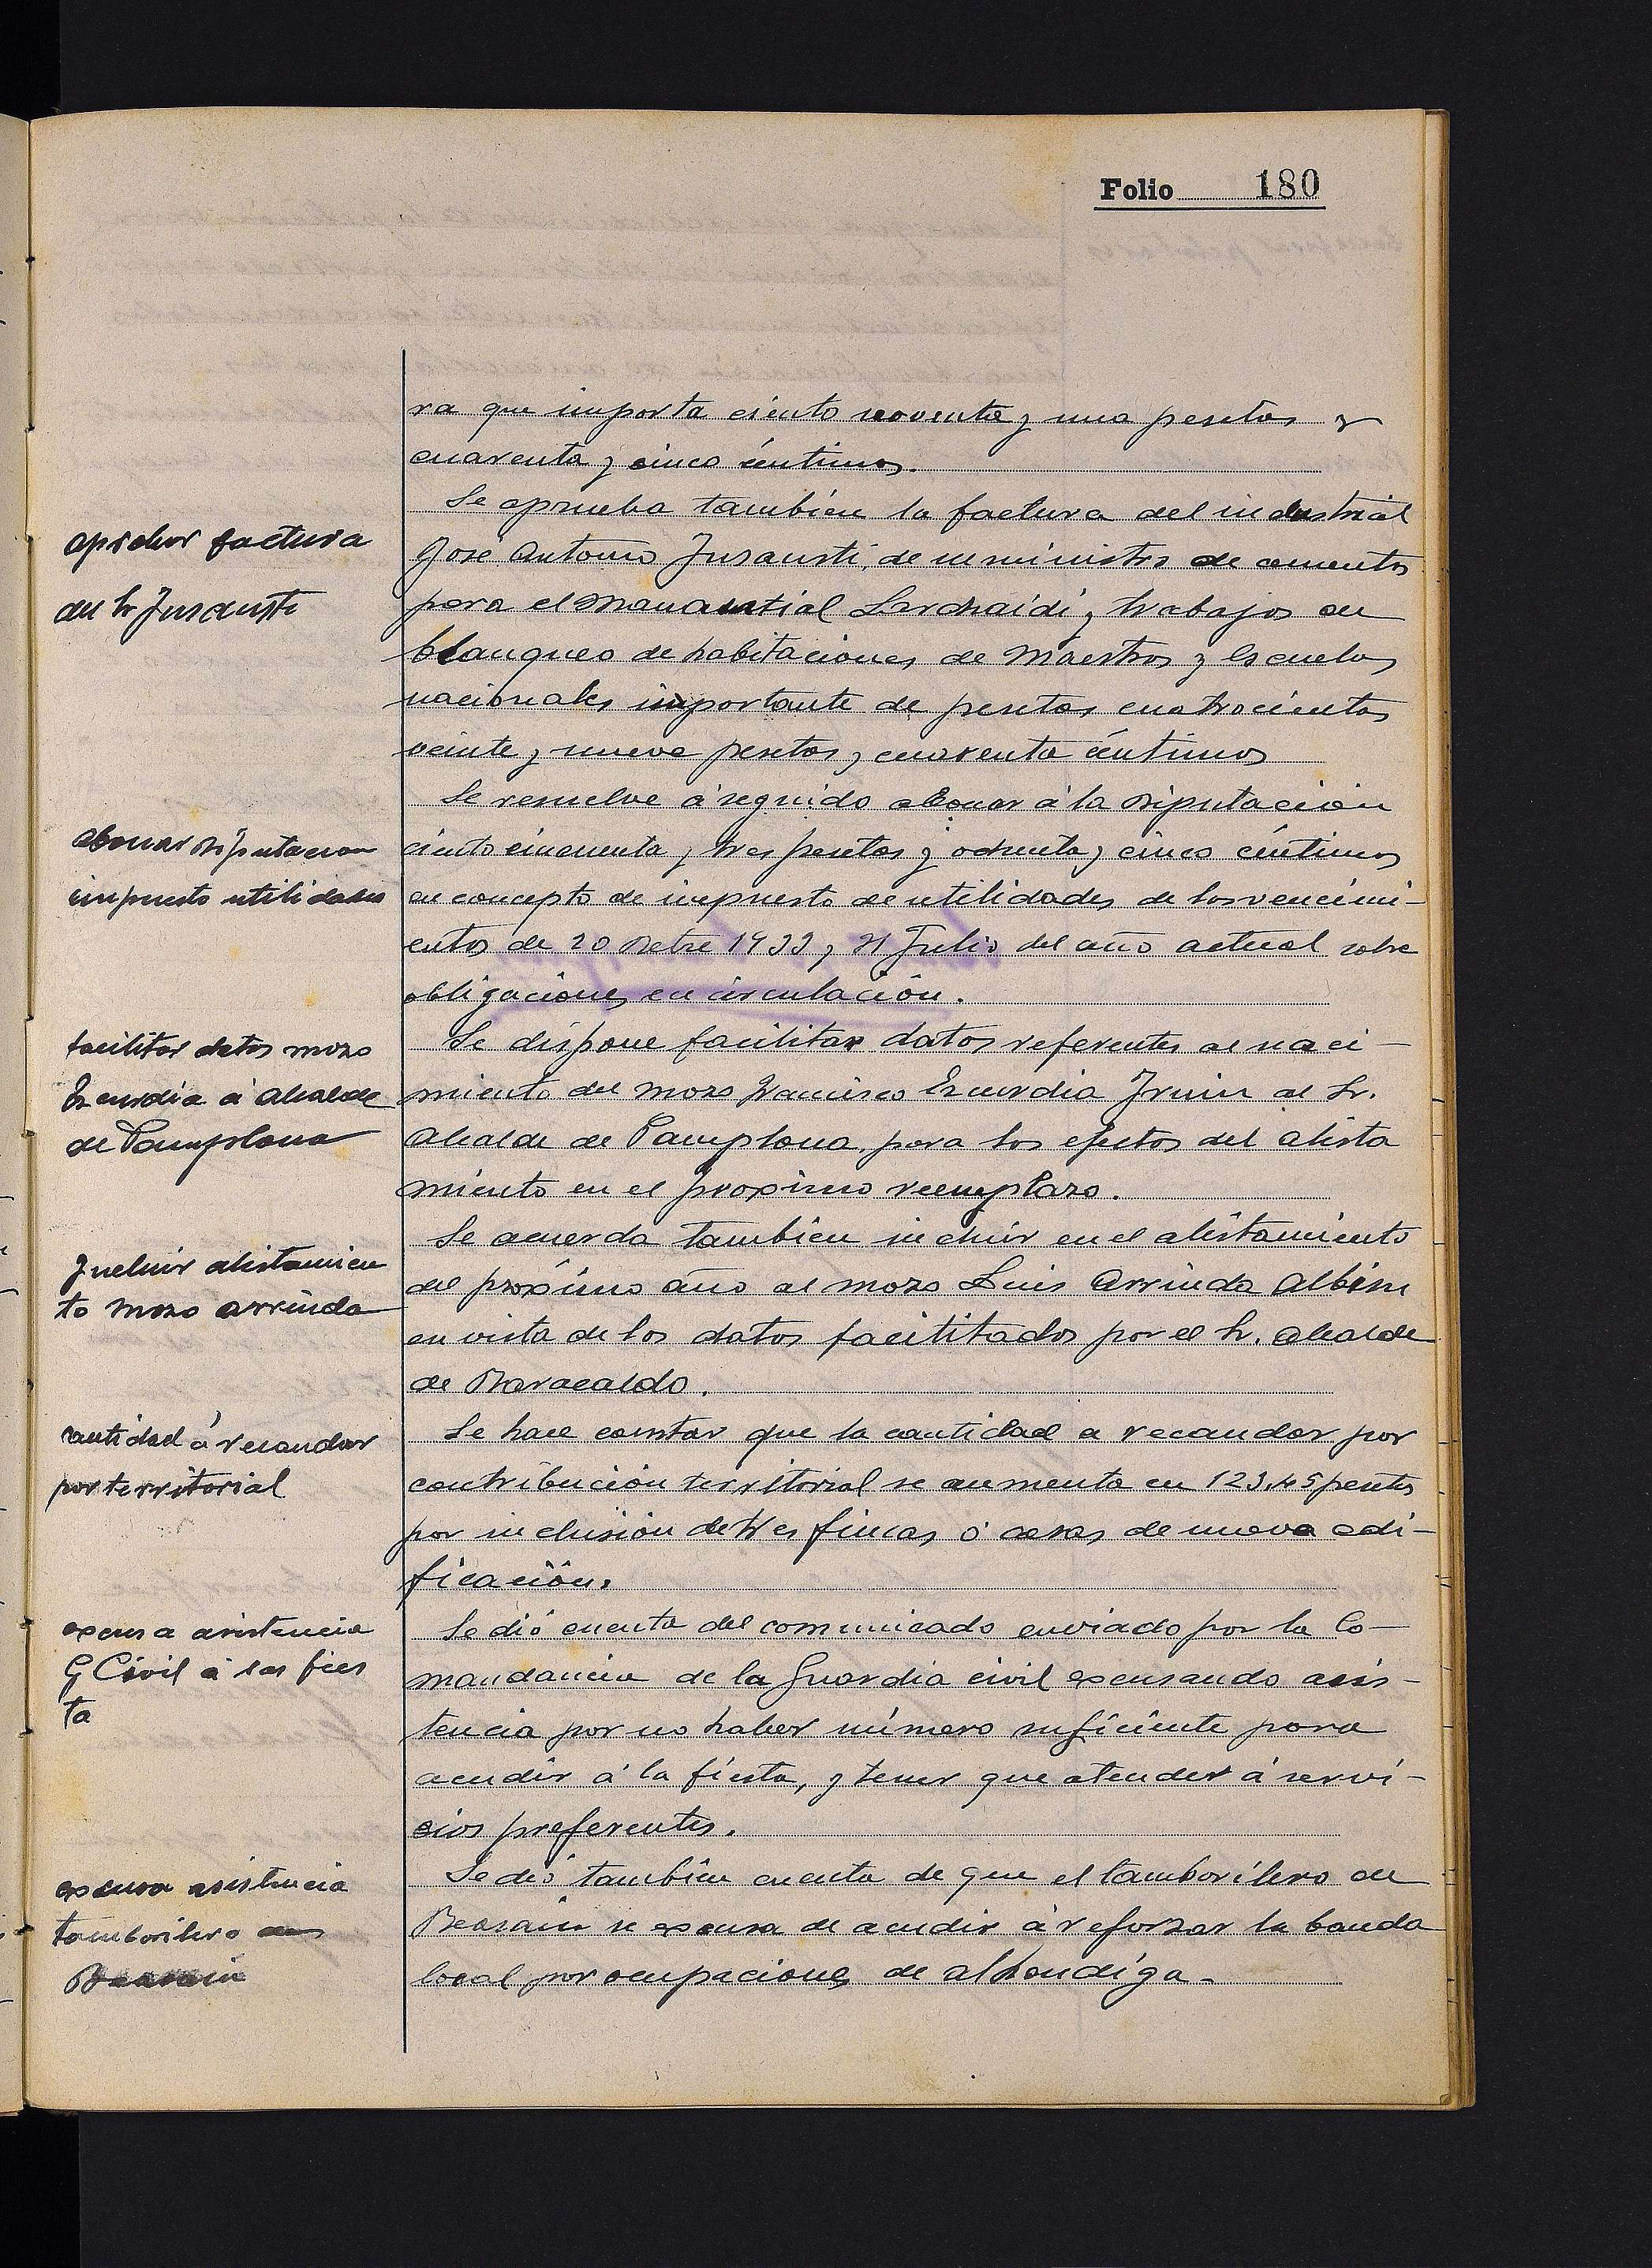 Folio 180
ra que importa ciento noventa y una pesetas y
cuarenta y cinco céntimos.
aprobar factura
del Sr Insausti
Se aprueba también la factura del industrial
José Antonio Insausti, de suministro de cemento
para el manantial Larchaidi y trabajos en
blanqueo de habitaciones de Maestros y Escuelas
nacionales importante de pesetas cuatrocientas
veinte y nueve pesetas y cuarenta céntimos
abonar Diputacion
impuesto utilidades
Se resuelve á seguido abonar á la Diputación
ciento cincuenta y tres pesetas y ochenta y cinco céntimos
en concepto de impuesto de utilidades de los vencimi-
entos de 20 Dcbre 1933 y 21 Julio del año actual sobre
obligaciones en circulación.
facilitar datos mozo
Ezcurdia á alcalde
de Pamplona
Se dispone facilitar datos referentes al naci-
miento del mozo Francisco Ezcurdia Iruin al Sr.
Alcalde de Pamplona, para los efectos del alista
miento en el proximo reemplazo.
Incluir alistamien
to mozo arrinda
Se acuerda también incluir en el alistamiento
del próximo año al mozo Luis Arrinda Albisu
en vista de los datos facilitados por el Sr. Alcalde
de Baracaldo.
cantidad á recaudar
por territorial
Se hace constar que la cantidad a recaudar por
contribución territorial se aumenta en 123,45 pesetas
por inclusión de tres fincas ó casas de nueva edi-
ficación.
excusa asistencia
G Civil á las fies
ta
Se dió cuenta del comunicado enviado por la Co-
mandancia de la Guardia civil excusando asis-
tencia por no haber número suficiente para
acudir á la fiesta, y tener que atender á servi-
cios preferentes.
excusa asistencia
tamborilero de
Beasain
Se dió también cuenta de que el tamborilero de
Beasain se excusa de acudir á reforzar la banda
local por ocupaciones de alhondiga.